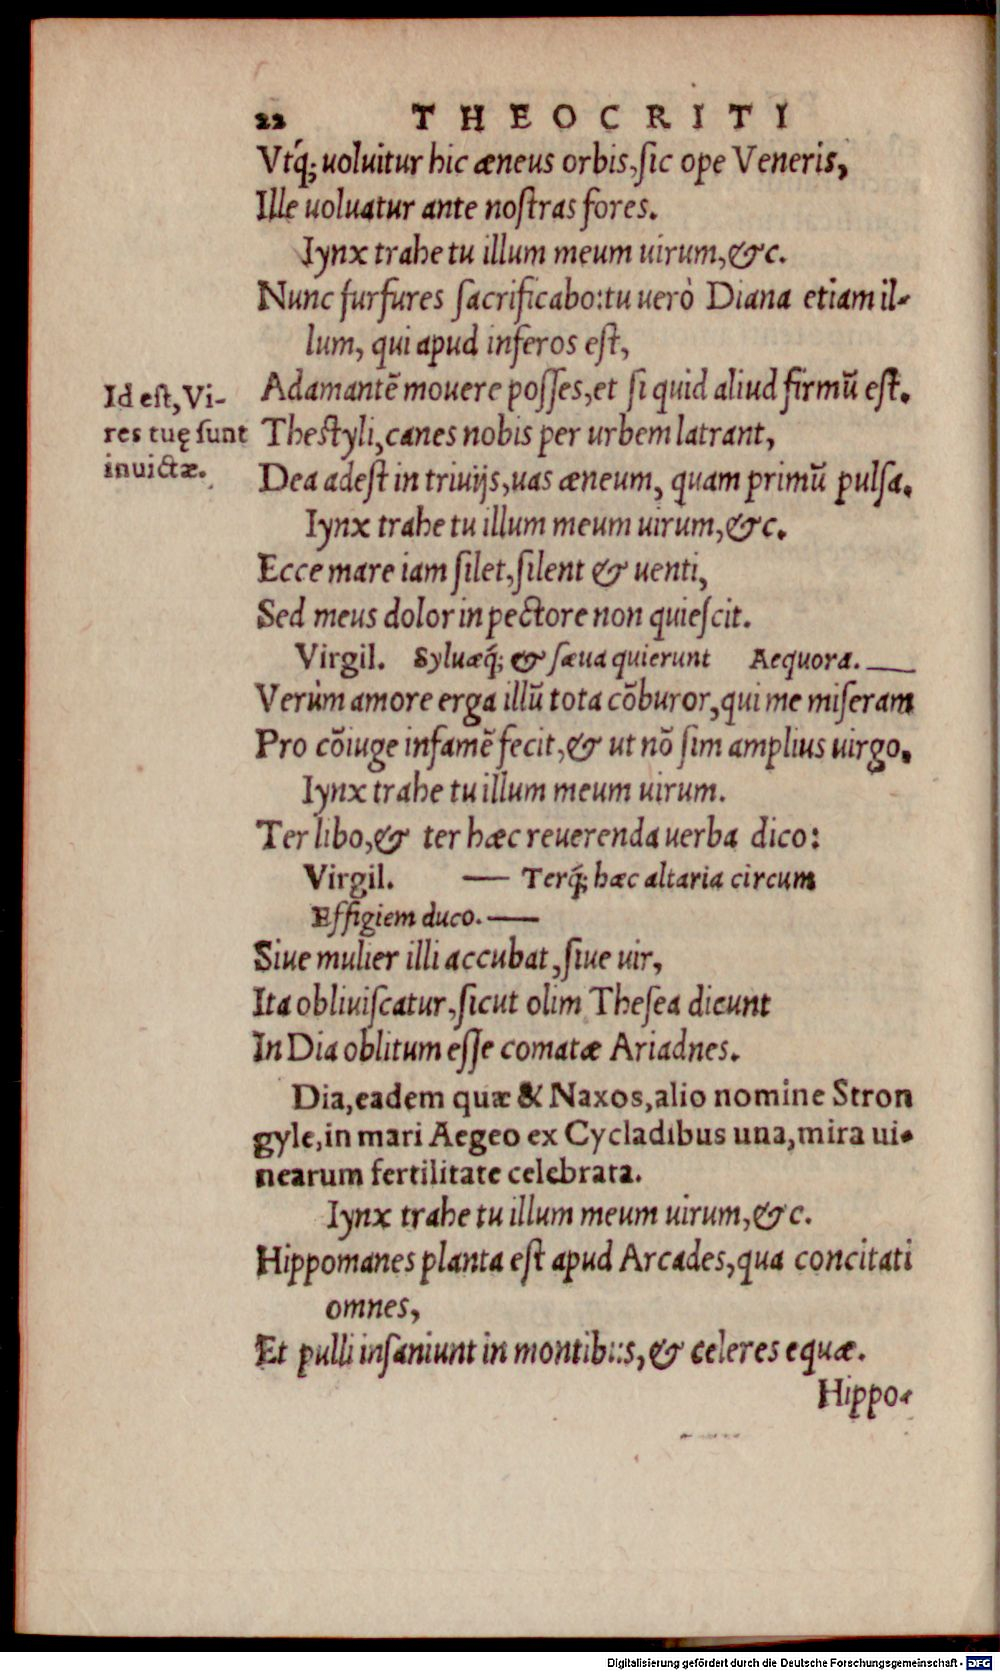 22 THEOCRITI
Vtq́; uoluitur hic æneus orbis, sic ope Veneris,
Ille uoluatur ante nostras fores.
Iynx trahe tu illum meum uirum, &c.
Nunc furfures sacrificabo: tu uerò Diana etiam il-
lum, qui apud inferos est,
Adamantē mouere posses, et si quid aliud firmū est.
Id est, Vi-
res tuę sunt
inuictæ.
Thestyli, canes nobis per urbem latrant,
Dea adest in triuijs, uas æneum, quam primū pulsa.
Iynx trahe tu illum meum uirum, &c.
Ecce mare iam silet, silent & uenti,
Sed meus dolor in pectore non quiescit.
Virgil. Syluæq́; & sæua quierunt Aequora. —
Verùm amore erga illū tota cōburor, qui me miseram
Pro cōiuge infamē fecit, & ut nō sim amplius uirgo.
Iynx trahe tu illum meum uirum.
Ter libo, & ter hæc reuerenda uerba dico:
Virgil. — Terq́; hæc altaria circum
Effigiem duco. —
Siue mulier illi accubat, siue uir,
Ita obliuiscatur, sicut olim Thesea dicunt
In Dia oblitum esse comatæ Ariadnes.
Dia, eadem quæ & Naxos, alio nomine Stron
gyle, in mari Aegeo ex Cycladibus una, mira ui-
nearum fertilitate celebrata.
Iynx trahe tu illum meum uirum, &c.
Hippomanes planta est apud Arcades, qua concitati
omnes,
Et pulli insaniunt in montibus, & celeres equæ.
Hippo-
Digitalisierung gefördert durch die Deutsche Forschungsgemeinschaft - DFG